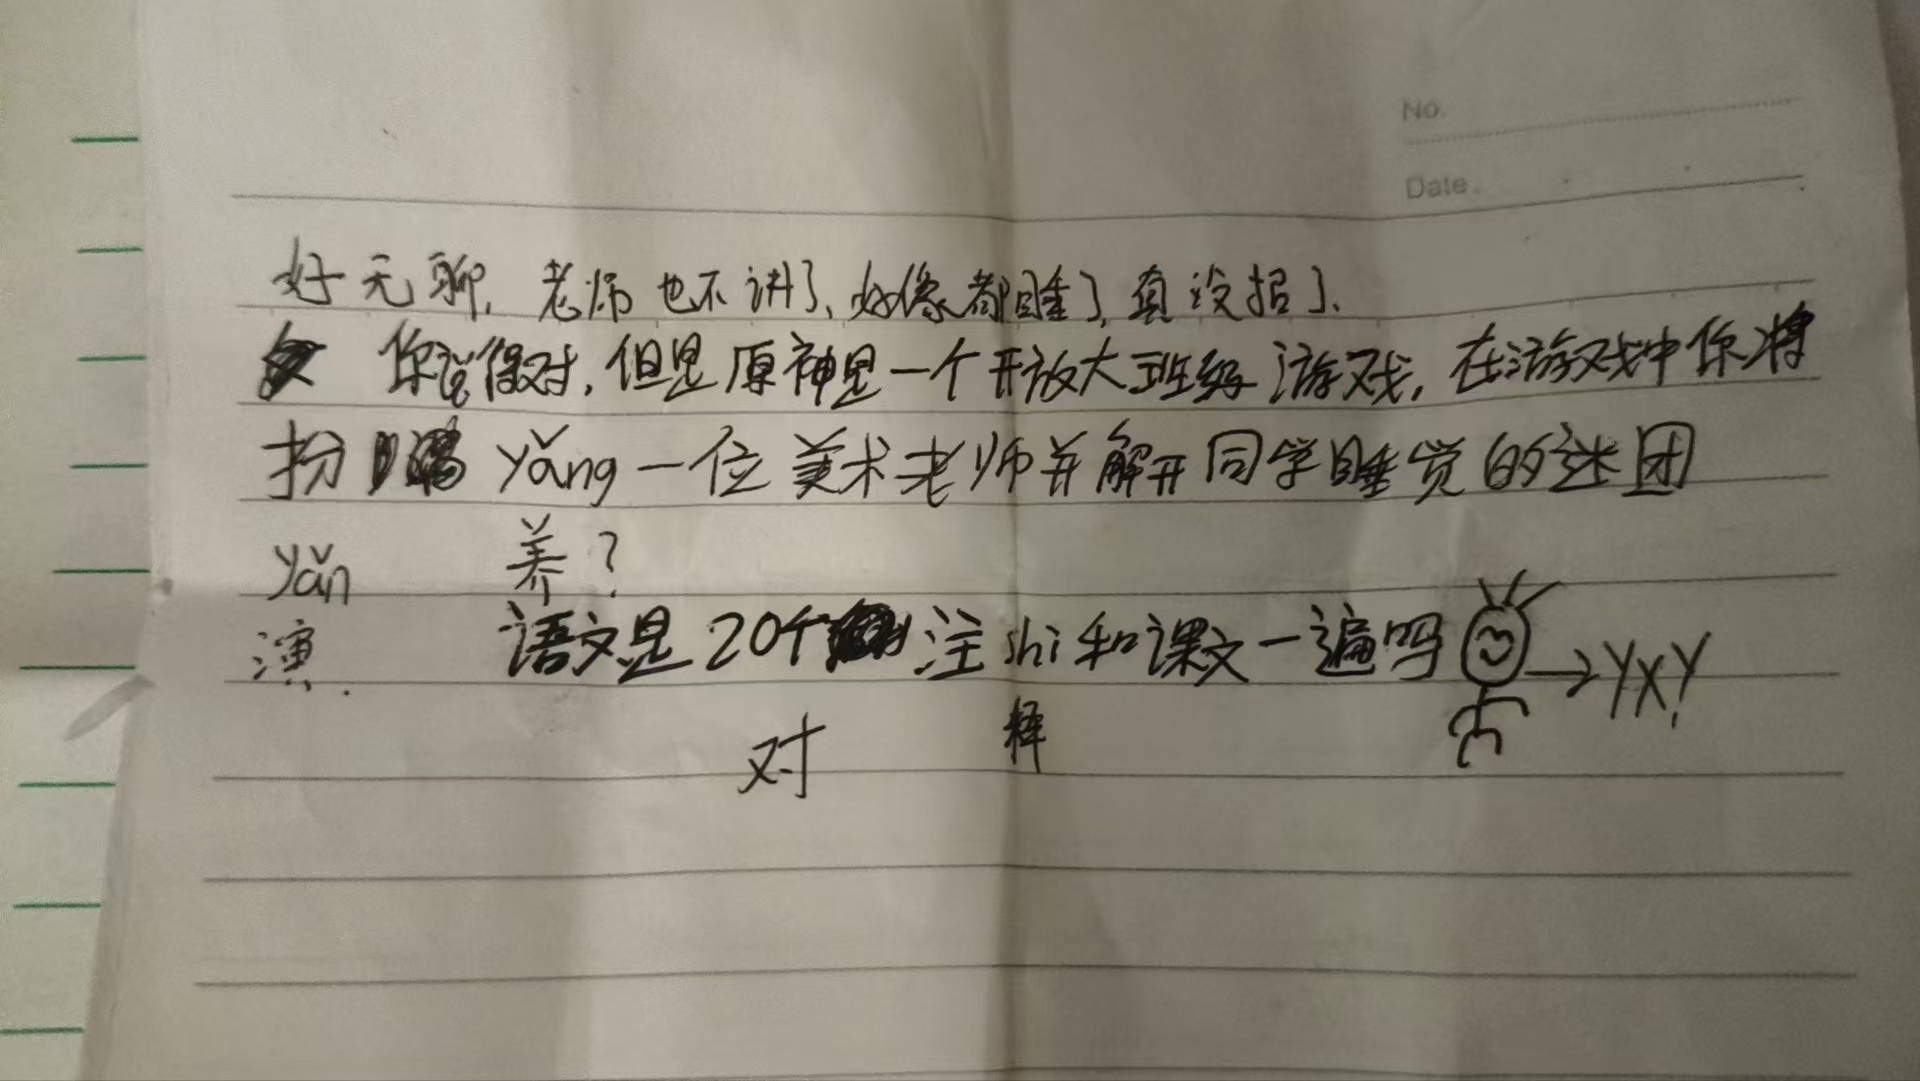 No.
Date.
好无聊,老师也不讲了,好像都睡了,真没招了.
你说得对,但是原神是一个开放大班级游戏,在游戏中你将
扮 yǎng 一位美术老师并解开同学睡觉的迷团
yǎn 养?
演. 语文是20个 注shi和课文一遍吗 → YXY
对 释